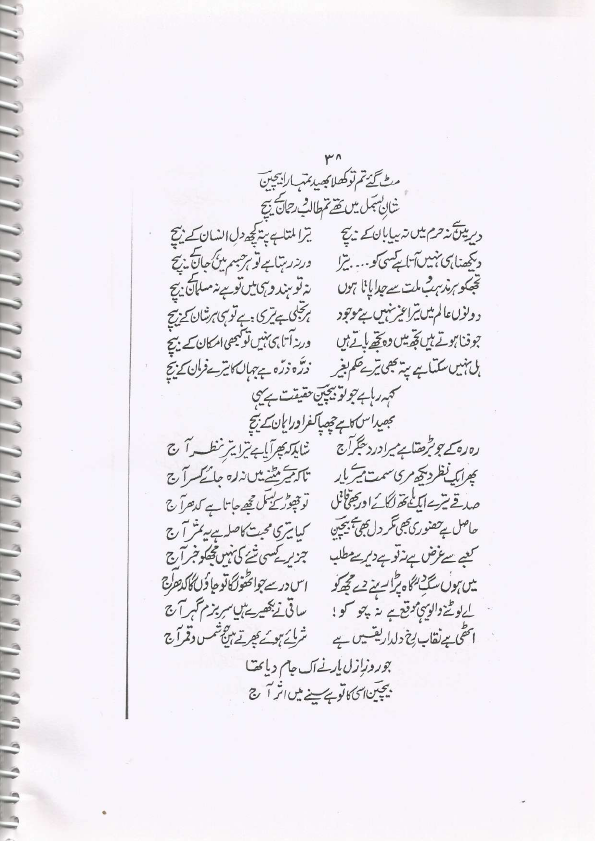 ۳۸
مٹ گئے تم تو کھلا بھید تمہارا بیچین
شانِ بسمل میں تھے تم طالب و رحمان کے بیچ
دیر میں ہے نہ حرم میں نہ بیابان کے بیچ ترا ملتا ہے پتہ کچھ دلِ انسان کے بیچ
دیکھنا ہی نہیں آتا ہے کسی کو .... ترا ورنہ رہتا ہے تو ہر جسم میں جان کے بیچ
تجھکو ہر مذہب و ملت سے جدا پاتا ہوں نہ تو ہندو ہی میں تو ہے نہ مسلمان کے بیچ
دونوں عالم میں ترا غیر نہیں ہے موجود ہر تجلی ہے تری، ہے تو ہی ہر شان کے بیچ
جو فنا ہوتے ہیں تجھ میں وہ تجھے پاتے ہیں ورنہ آتا ہی نہیں تو کبھی امکان کے بیچ
ہل نہیں سکتا ہے پتہ بھی ترے حکم بغیر ذرّہ ذرّہ ہے جہاں کا ترے فرمان کے بیچ
کہہ رہا ہے جو تو بیچین حقیقت ہے یہی
بھید اس کا ہے چھپا کفر اور ایمان کے بیچ
رہ رہ کے جو بڑھتا ہے مرا دردِ جگر آج شاید کہ پھر آیا ہے ترا تیرِ نظر آج
پھر ایک نظر دیکھ مری سمت مرے یار تاکہ مرے مٹنے میں نہ رہ جائے کسر آج
صدقے ترے ایک ہاتھ لگائے اور بھی قاتل تو چھوڑ کے بسمل مجھے جاتا ہے کدھر آج
حاصل ہے حضوری بھی مگر دل بھی ہے بیچین کیا تیری محبت کا صلہ ہے یہ ثمر آج
کعبے سے غرض ہے نہ تو ہے دیر سے مطلب جز تیرے کسی شئے کی نہیں مجھ کو خبر آج
میں ہوں سگِ درگاہ پڑا رہنے دے مجھ کو اس در سے جو اٹھوں گا تو جاؤں گا کدھر آج
اے لوٹنے والو یہی موقع ہے نہ چوکو! ساقی نے بکھیرے ہیں سرِ بزم گہر آج
اٹھی ہے نقاب رخِ دلدار یقیں ہے شرمائے ہوئے پھرتے ہیں جو شمس و قمر آج
جو روزِ ازل یار نے اک جام دیا تھا
بیچین اسی کا تو ہے سینے میں اثر آج